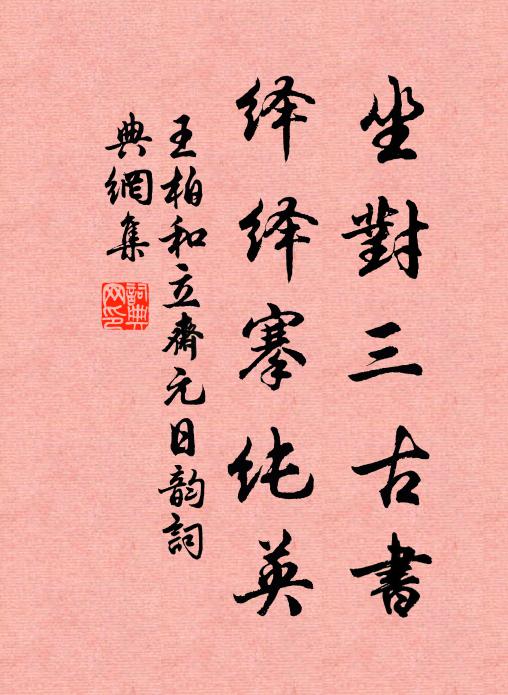 坐對三古書
绎绎搴纯英
王柏和立齋元日韵詞
典網集
詞典网印